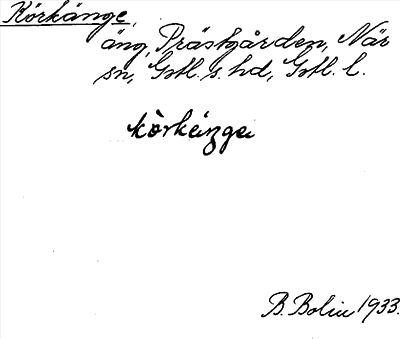 Körkänge,
äng, Prästgården, När
sn, Gotl. s. hd, Gotl. l.
kòrkä́ŋga
B. Bolin 1933.